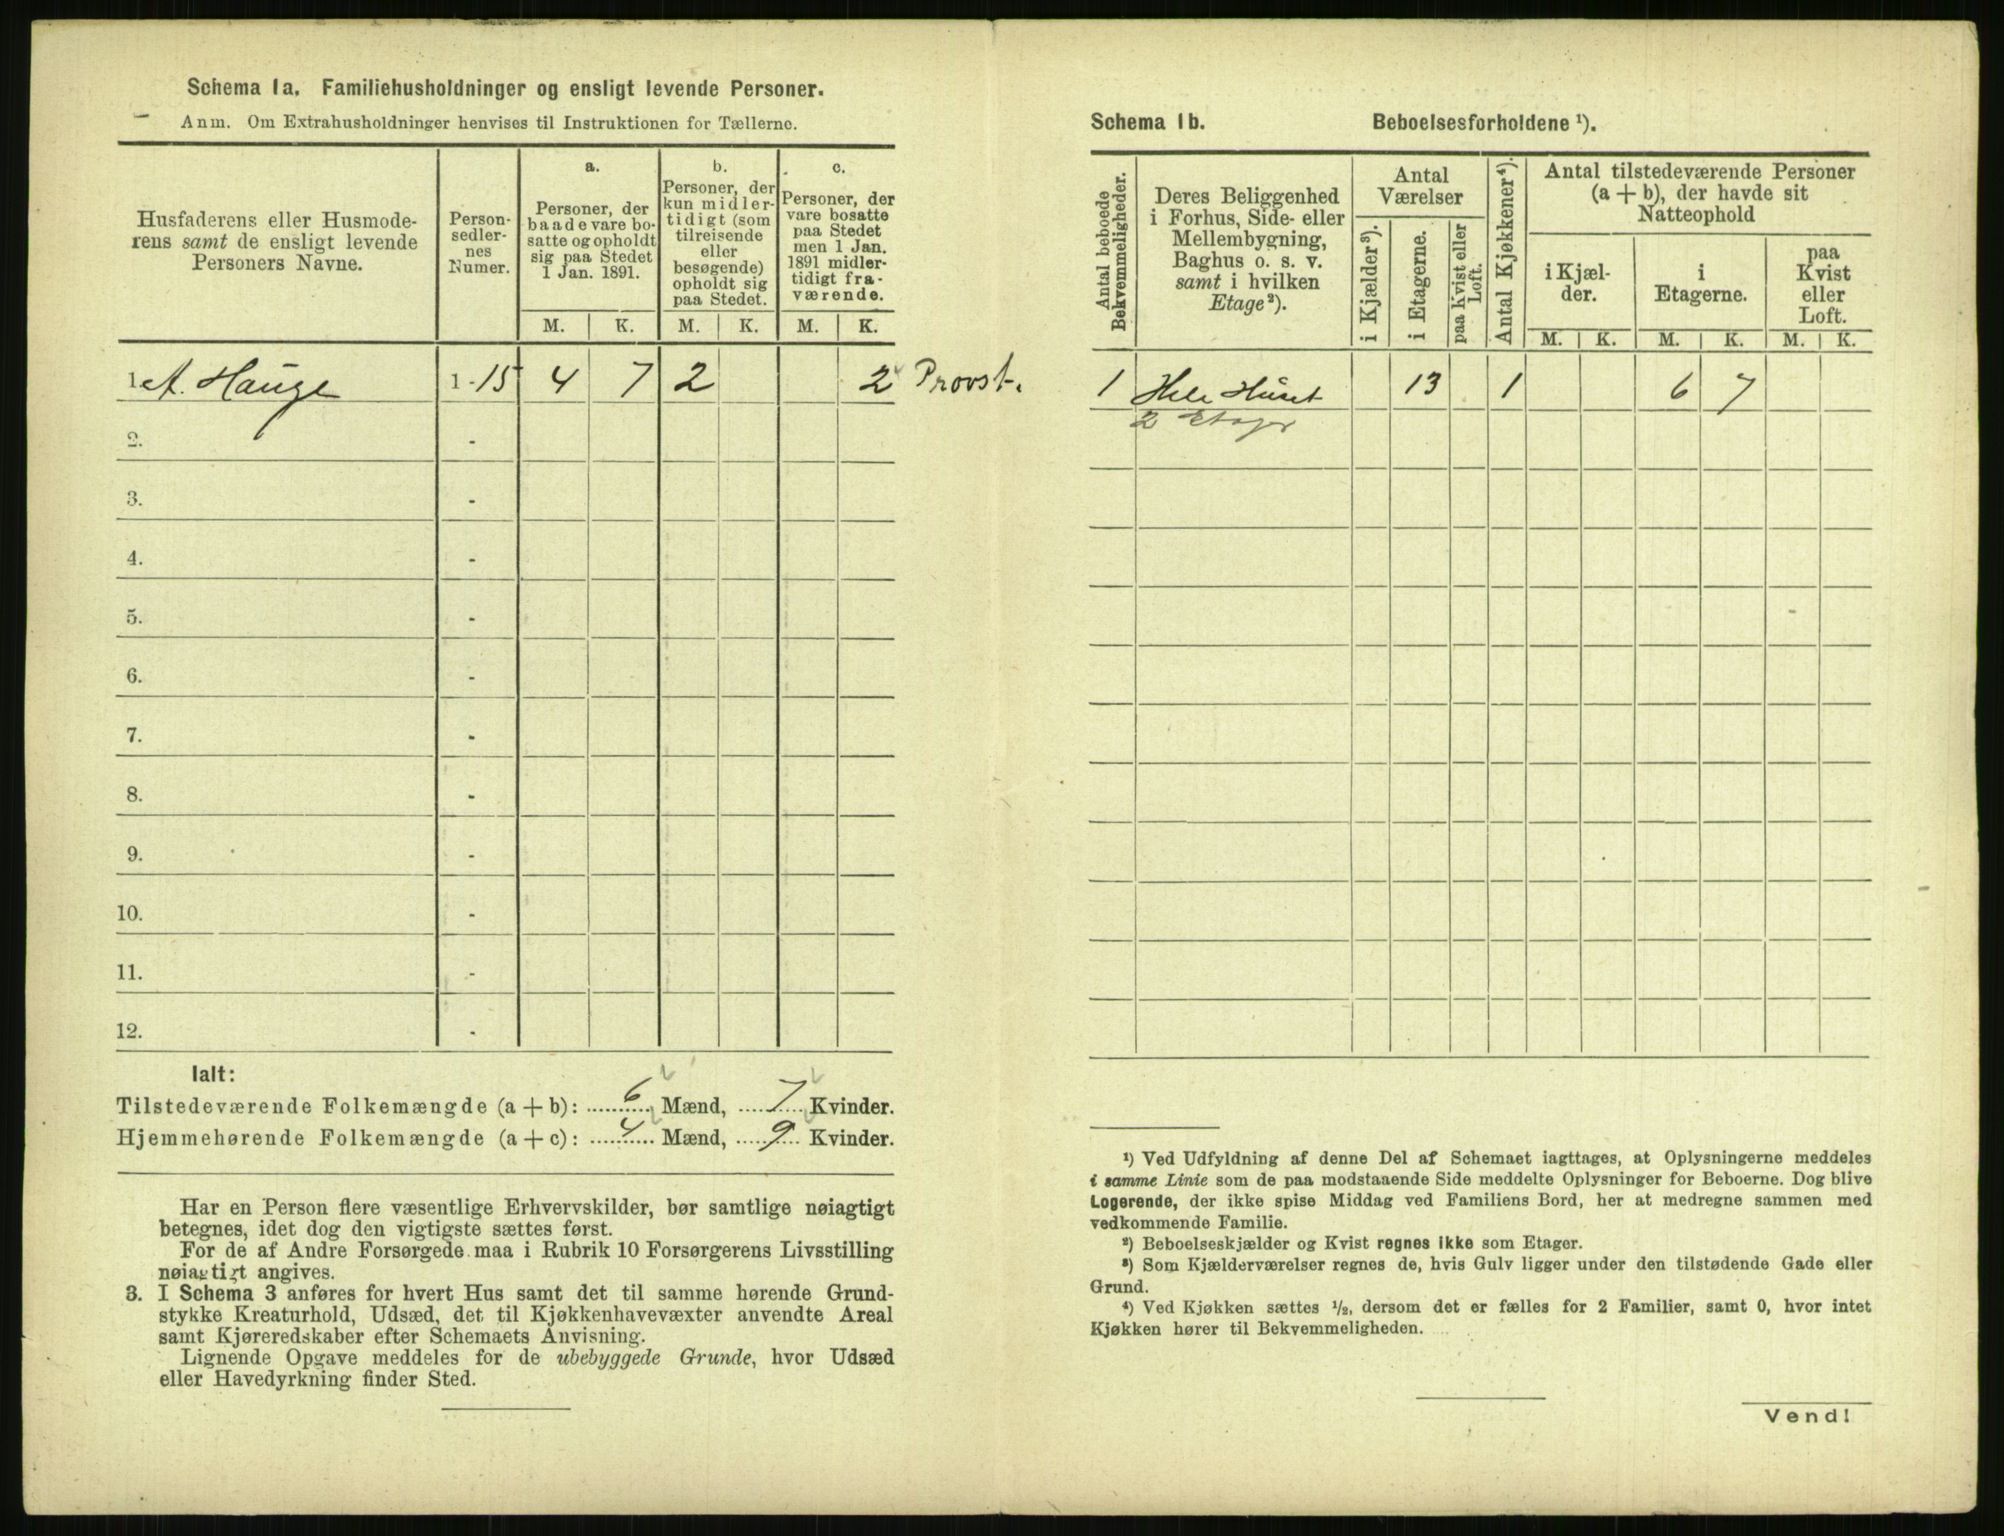 Schema 1a. Familiehusholdninger og ensligt levende Personer.
Anm. Om Extrahusholdninger henvises til Instruktionen for Tællerne.
Husfaderens eller Husmoderens samt de ensligt levende Personers Navne.
Personsedlernes Numer.
a.
Personer, der baade vare bosatte og opholdt sig paa Stedet 1 Jan. 1891.
b.
Personer, der kun midlertidigt (som tilreisende eller besøgende) opholdt sig paa Stedet.
c.
Personer, der vare bosatte paa Stedet men 1 Jan. 1891 midlertidigt fraværende.
M. K. M. K. M. K.
1. A. Hauge 1-15 4 7 2 2 Provst.
2. -
3. -
4. -
5. -
6. -
7. -
8. -
9. -
10. -
11. -
12. -
Ialt:
Tilstedeværende Folkemængde (a + b): 6 Mænd, 7 Kvinder.
Hjemmehørende Folkemængde (a + c): 4 Mænd, 9 Kvinder.
Har en Person flere væsentlige Erhvervskilder, bør samtlige nøiagtigt
betegnes, idet dog den vigtigste sættes først.
For de af Andre Forsørgede maa i Rubrik 10 Forsørgerens Livsstilling
nøiagtigt angives.
3. I Schema 3 anføres for hvert Hus samt det til samme hørende Grund-
stykke Kreaturhold, Udsæd, det til Kjøkkenhavevæxter anvendte Areal
samt Kjøreredskaber efter Schemaets Anvisning.
Lignende Opgave meddeles for de ubebyggede Grunde, hvor Udsæd
eller Havedyrkning finder Sted.
Schema 1b. Beboelsesforholdene ¹).
Antal beboede Bekvemmeligheder.
Deres Beliggenhed i Forhus, Side- eller Mellembygning, Baghus o. s. v. samt i hvilken Etage²).
Antal Værelser
i Kjælder³).
i Etagerne.
paa Kvist eller Loft.
Antal Kjøkkener⁴).
Antal tilstedeværende Personer (a + b), der havde sit Natteophold
i Kjælder.
i Etagerne.
paa Kvist eller Loft.
M. K. M. K. M. K.
1 Hele Huset 13 1 6 7
2 Etager
¹) Ved Udfyldning af denne Del af Schemaet iagttages, at Oplysningerne meddeles
i samme Linie som de paa modstaaende Side meddelte Oplysninger for Beboerne. Dog blive
Logerende, der ikke spise Middag ved Familiens Bord, her at medregne sammen med
vedkommende Familie.
²) Beboelseskjælder og Kvist regnes ikke som Etager.
³) Som Kjælderværelser regnes de, hvis Gulv ligger under den tilstødende Gade eller
Grund.
⁴) Ved Kjøkken sættes ½, dersom det er fælles for 2 Familier, samt 0, hvor intet
Kjøkken hører til Bekvemmeligheden.
Vend!